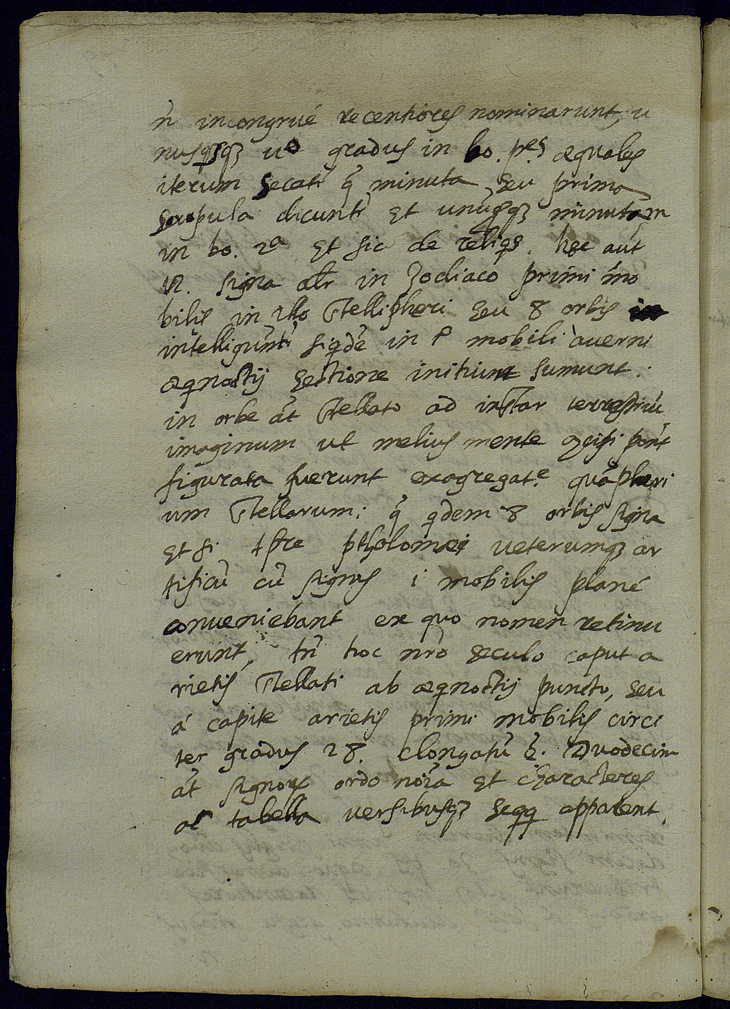 n̄ incongrué recentiores nominarunt, u
nusq̃q̃ʒ uo gradus in 60. pes æquales
iterum secati q̃ minuta seu prima
scrupula dicunt̃ et unusq̃ʒ minutum
in 60. 2a et sic de reliqs. hęc aut
12. signa alr in Zodiaco primi mo
bilis in illo stelliferi seu 8 orbis
intelligunt̃ siq̃dē in p mobili averni
æqnoctij sectione initium sumunt.
in orbe āt stellato ad instar terrestriū
imaginum ut melius mente
figurata fuerunt
um stellarum: q̃ q̃dem 8 orbis signa
et si tpre ptholomei veterumqʒ ar
tificū cū signis i mobilis planè
conveniebant ex quo nomen retinu
erunt, tn̄ hoc nr̄o seculo caput a
rietis stellati ab æqnoctij puncto, seu
á capite arietis primi mobilis circi
ter gradus 28. elongatū ē. Duodecim
āt signoꝝ ordo noīa et characteres
tabella versibusqʒ seqq apparent.